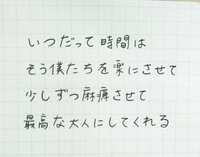 いつだって時間は
そう僕たちを楽にさせて
少しずつ麻痺させて
最高な大人にしてくれる